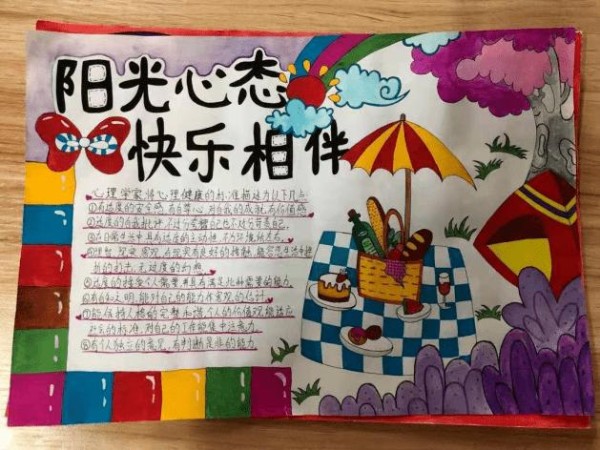 阳光心态
快乐相伴
心理学家将心理健康的标准描述为以下几点
①有适度的安全感,有自尊心,对自我的成就有价值感
②适度的自我批评,不过分夸耀自己也不过分苛责自己
③在日常生活中具有适度的主动性,不为环境所左右
④理智,现实,客观,与现实有良好的接触,能容忍生活中挫
折的打击,无过度的幻想
⑤适度的接受个人需要并具有满足此种需要的能力
⑥有自知之明,能对自己的能力作客观的估计
⑦能保持人格的完整和谐,个人的价值观能适应
社会的标准,对自己的工作能集中注意力
⑧有个人独立的意见,有判断是非的能力